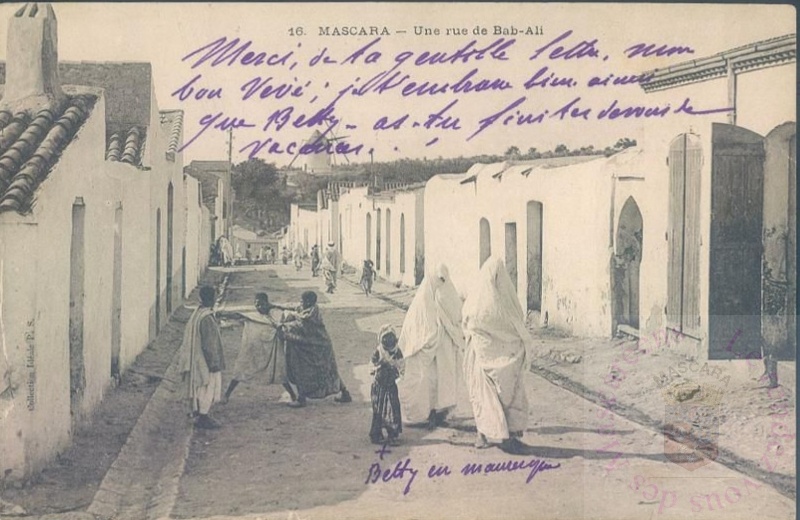 16. MASCARA — Une rue de Bab-Ali
Merci, de ta gentille lettre, mon
bon Vévé; je t'embrasse bien ainsi
que Betty - as-tu fini tes devoirs de
vacances...
Collection Idéale P. S.
+
Betty en mauresque
MASCARA
vous des